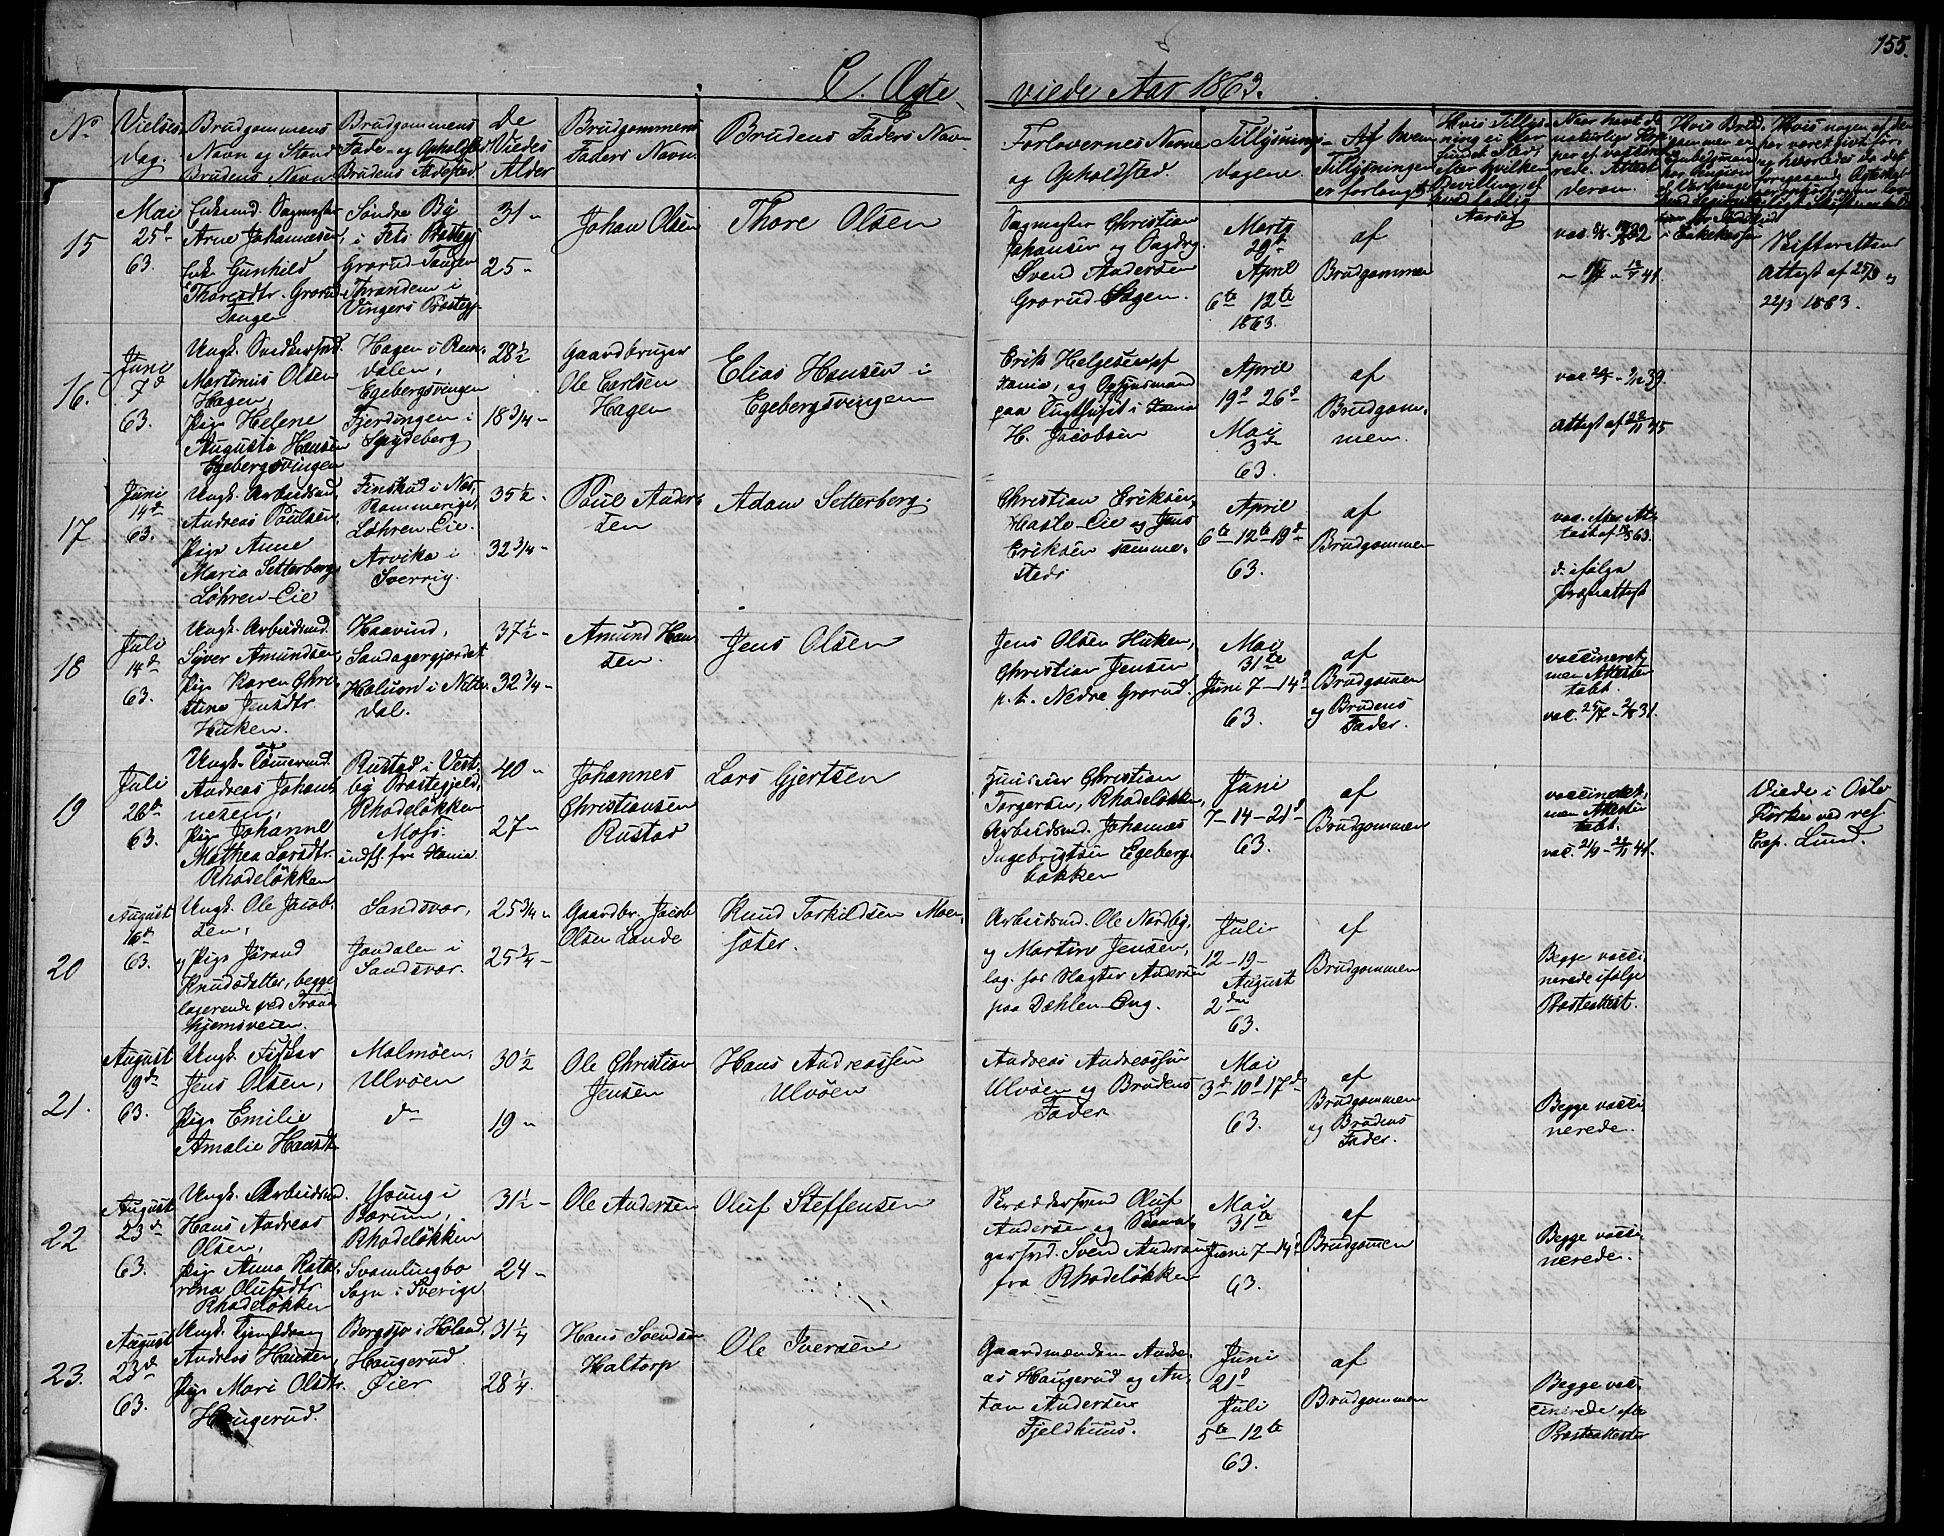 155.
C. Ægte- viede Aar 1863.
No.
Vielses
dag.
Brudgommens
Navn og Stand
Brudens Navn
Brudgommens
Føde- og Opholdsst
Brudens Fødested
De
Viedes
Alder
Brudgommens
Faders Navn
Brudens Faders Navn
Forlovernes Navne
og Opholdsted
Tillysnings-
dagene
Af hvem
Tillysningen
er forlangt
15
Mai
25d
63.
Enkemd. Sagmester
Arne Johannesen,
Enke Gunhild
Thoresdtr. Grorud
Tangen
Søndre By
i Fets Præstegj
Grorud-Tangen
Thrandem i
Vingers Præstegj.
31 "
25 "
Johan Olsen
Thore Olsen
Sagmester Christian
Johansen og Sagdrg.
Svend Andersen
Grorud-Sagen.
Marts
29de
April
6te 12te
1863.
af
Brudgommen
Skifterettens
Attest af 25/3 og
22/3 1863.
16.
Juni
7d
63.
Ungk. Snedkersvd.
Martinus Olsen
Hagen,
Pige Helene
Augusta Hansen
Egebergsvingen
Hagen i Rom-
dalen,
Egebergsvingen
Fjerdingen i
Spydeberg
28 1/2
18 3/4 "
Gaardbruger
Ole Carlsen
Hagen
Elias Hansen i
Egebergsvingen
Erik Helgesen af
Xania, og Opsynsmand
paa Tugthuset i Xania
H. Jacobsen
April
19d 26d
Mai
3de
63.
af
Brudgom-
men.
Attest af 22/11 45
17
Juni
14de
63.
Ungk. Arbeidsmd.
Andreas Poulsen,
Pige Anne
Maria Setterberg
Løhren-Eie
Finstad i Næs,
Rommerige,
Løhren-Eie.
Arvika i
Sverrig.
35 1/2 "
32 3/4 "
Poul Anders
sen
Adam Setterberg.
Christian Eriksen,
Hasle-Eie og Jens
Eriksen samme-
steds
April
6te 12te 19d
63.
af
Brudgommen
do ifølge
Præsteattest
18
Juli
14d
63.
Ungk. Arbeidsmd.
Syver Amundsen
Pige Karen Chri-
stine Jensdtr.
Huken.
Haavind,
Sandagergjordet
Holum i Nitte-
dal.
37 1/2 "
32 3/4 "
Amund Han-
sen.
Jens Olsen
Jens Olsen Huken,
Christian Jensen
p. t. Nedre Grorud.
Mai
31te
Juni 7-14d
63.
af
Brudgommen
og Brudens
Fader.
vaccineret,
men Attesten
tabt.
19
Juli
26de
63.
Ungk. Tømmermd.
Andreas Johan-
nesen,
Pige Johanne
Mathea Larsdtr.
Rhodeløkken
Rustad i Vest-
by Præstegjeld,
Rhodeløkken
Moss.
indfl. fra Xania
40 "
27 "
Johannes
Christiansen
Rustad
Lars Gjertsen
Huuseier Christian
Torgersen, Rhodeløkken,
Arbeidsmd. Johannes
Ingebrigtsen Egeberg-
bakken
Juni
7-14-21d
63.
af
Brudgommen
vaccineret,
men Attesten
tabt.
Viede i Oslo
Kirke ved res.
Cap. Lund.
20
August
16d
63.
Ungk. Ole Jacob-
sen,
og Pige Jørand
Knudsdatter, begge
logerende ved Trond-
hjemsveien.
Sandsvær,
Jondalen i
Sandsvær.
25 3/4 "
25 3/4 "
Gaardbr. Jacob
Olsen Lande
Knud Torkildsen Moen-
sæter.
Arbeidsmd. Ole Nordby
og Martin Jensen,
log. hos Slagter Andersen
paa Dæhlen-Eng.
Juli
12-19-
August
2den
63.
af
Brudgommen
Begge vacci-
nerede ifølge
Præsteattest.
21.
August
19de
63.
Ungk. Fisker
Jens Olsen,
Pige Emilie
Amalie Hansdtr
Malmøen,
Ulvøen
do
30 1/2
19 "
Ole Christian
Jensen
Hans Andreassen
Ulvøen
Andreas Andreassen
Ulvøen og Brudens
Fader
Mai
3d 10d 17de
63.
af
Brudgommen
og Brudens
Fader.
Begge vacci-
nerede.
22
August
23d
63.
Ungk. Arbeidsmd.
Hans Andreas
Olsen,
Pige Anna Katha-
rina Olufsdtr.
Rhodeløkken
Bærum,
Rhodeløkken
Svamlingbo
Sogn i Sverige
31 1/2 "
24 "
Ole Andersen
Oluf Steffensen
Skræddersvend Oluf
Andersen og
Svend Andersen
fra Rhodeløkken
Mai
31te
Juni 7-14d
63.
af
Brudgommen
Begge vacci-
nerede.
23.
August
23d
63.
Ungk. Tjenestdreng
Andreas Hansen,
Pige Mari Olsdtr.
Haugerud.
Bergsjø i Høland,
Haugerud
Øier
31 1/4
28 1/4.
Hans Svendsen
Haltorp
Ole Iversen
Gaardmændene Andre-
as Haugerud og An-
ton Andersen
Fjeldhuus.
Juni
21d
Juli
5te 12te
63.
af
Brudgommen
Begge vac-
cinerede efter
Præsteattester